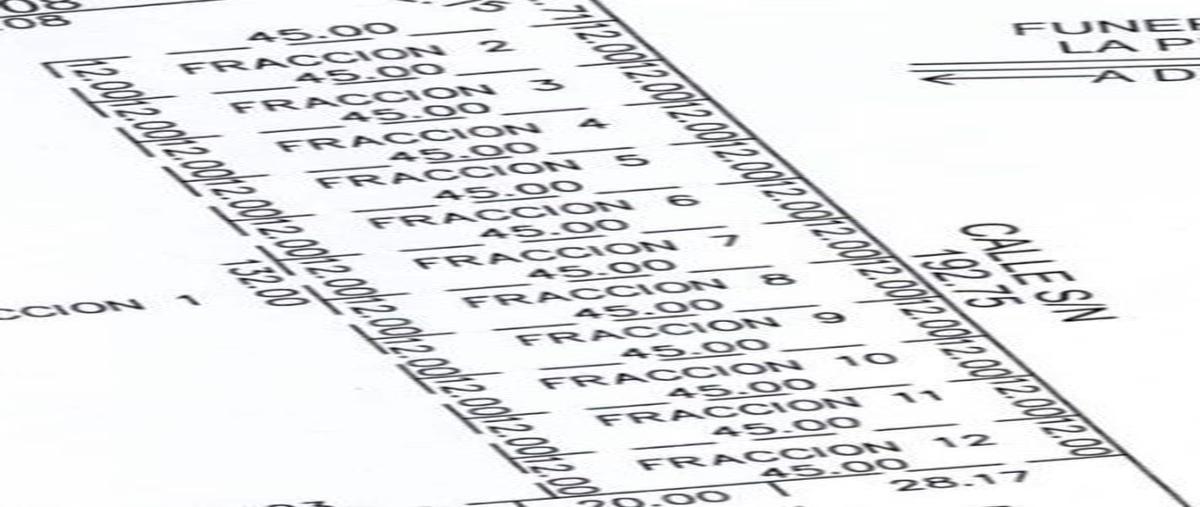 .08
45.00
FRACCION 2
45.00
FRACCION 3
45.00
FRACCION 4
45.00
FRACCION 5
45.00
FRACCION 6
45.00
FRACCION 7
45.00
FRACCION 8
45.00
FRACCION 9
45.00
FRACCION 10
45.00
FRACCION 11
45.00
FRACCION 12
45.00
12.00
12.00
12.00
12.00
12.00
12.00
12.00
12.00
12.00
12.00
12.00
132.00
CCION 1
12.00
12.00
12.00
12.00
12.00
12.00
12.00
12.00
12.00
12.00
12.00
CALLE S/N
192.75
LA P
A D
20.00
28.17